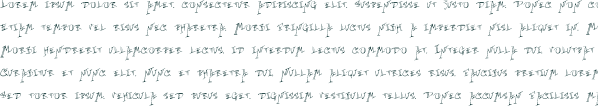 Lorem ipsum dolor sit amet, consectetur adipiscing elit. Suspendisse ut justo diam. Donec non
etiam tempor vel risus nec pharetra. Morbi fringilla luctus nibh, a imperdiet nisl aliquet in.
Morbi hendrerit ullamcorper lectus, id interdum lectus commodo at. Integer nulla dui, volutpat
Curabitur et nunc elit. Nunc et pharetra dui. Nullam aliquet ultrices risus. Faucibus pretium lorem
Sed tortor ipsum, vehicula sed purus eget, dignissim vestibulum tellus. Donec accumsan facilisis